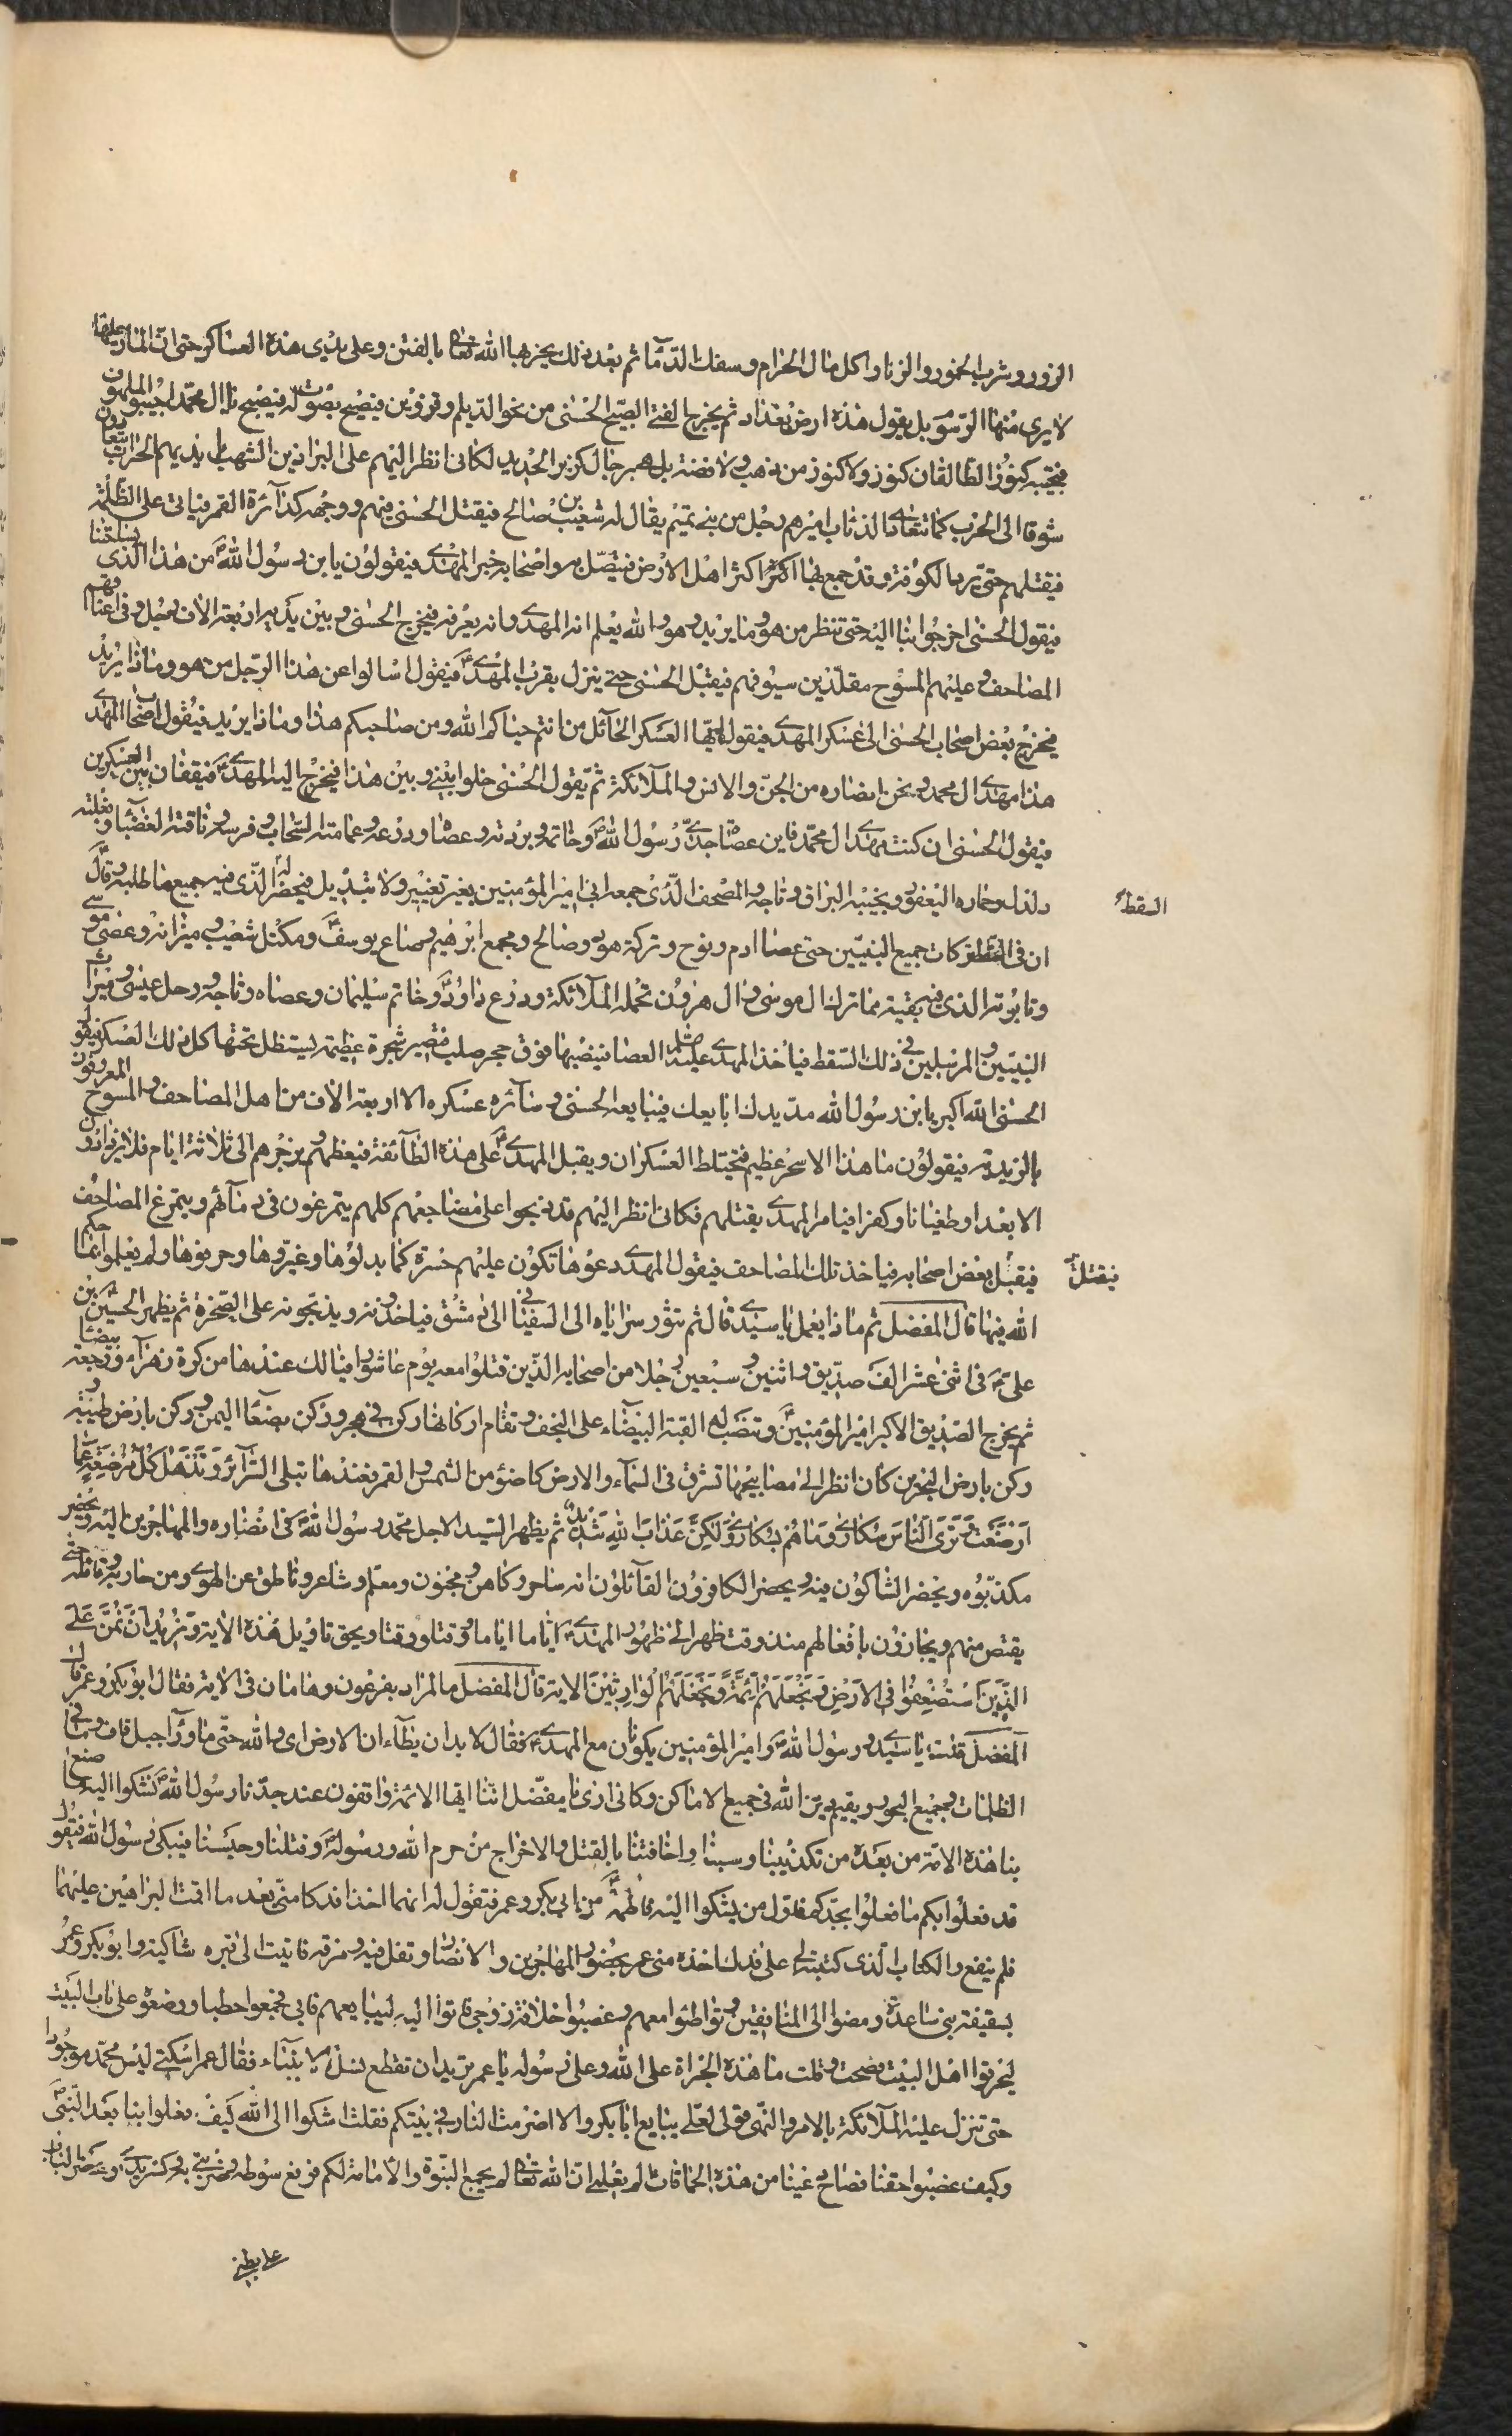 الزور وشرب الخمور والزنا واكل مال الحرام وسفك الدماء ثم بعد ذلك يخربها الله تعالى بالفتن وعلى يدى هذه العساكر حتى ان المار عليها
لا يرى منها الا رسوم بل يقول هذه ارض بغداد ثم يخرج الفتى الصبيح الحسنى من نحو الديلم وقزوين فيصيح بصوت له فيصيح يا ال محمد اجيبوا الملهوف
فيجيبه كنوز الطالقان كنوز ولا كنوز من ذهب ولا فضة بل هم رجال كزبر الحديد لكانى انظر اليهم على البراذين الشهب بايديهم الحراب يتعاوون
شوقا الى الحرب كما تتعاوى الذئاب اميرهم رجل من بنى تميم يقال له شعيب بن صالح فيقتل الحسنى فيهم ووجهه كدائرة القمر فياتى على الظلمة
فيقتلهم حتى يرد الكوفة وقد جمع بها اكثر اهل الارض فيتصل به واصحابه خبر المهدى فيقولون يا بن رسول الله من هذا الذى بساحتنا
فيقول الحسنى اخرجوا بنا اليه حتى تنظر من هو وما يريد وهو والله يعلم انه المهدى وانه يعرفه فيخرج الحسنى وبين يديه اربعة الاف رجل وفى اعناقهم
المصاحف وعليهم المسوح مقلدين سيوفهم فيقبل الحسنى حتى ينزل بقرب المهدى فيقول اسالوا عن هذا الرجل من هو وماذا يريد
فيخرج بعض اصحاب الحسنى الى عسكر المهدى فيقول ايها العسكر الحائل من انتم حياكم الله ومن صاحبكم هذا وماذا يريد فيقول اصحاب المهدى
هذا مهدى ال محمد ونحن انصاره من الجن والانس والملائكة ثم يقول الحسنى خلوا بينى وبين هذا فيخرج اليه المهدى فيقفان بين العسكرين
فيقول الحسنى ان كنت مهدى ال محمد فاين عصا جدى رسول الله وخاتمه وبردته ودرعه وعمامته السحاب وفرسه وناقته العضباء وبغلته
دلدل وحماره اليعفور ونجيبه البراق وتاجه والمصحف الذى جمعه ابى امير المؤمنين بغير تغيير ولا تبديل فيحضر له الذى فيه جميع ما طلبه وقال
السقط
ان فى السقط تركات جميع النبيين حتى عصا ادم ونوح وتركة هود وصالح ومجمع ابرهيم وصاع يوسف ومكتل شعيب وميزانه وعصى موسى
وتابوته الذى فيه بقية مما ترك ال موسى وال هرون تحمله الملائكة ودرع داود وخاتم سليمان وعصاه وتاجه ورحل عيسى وميراث
النبيين والمرسلين فى ذلك السقط فياخذ المهدى عليه السلم العصا فينصبها فوق حجر صلب فتصير شجرة عظيمة يستظل تحتها كل ذلك العسكر فيقول
الحسنى الله اكبر يا ابن رسول الله مد يدك ابايعك فيبايعه الحسنى وسائر عسكره الا اربعة الاف من اهل المصاحف والمسوح المعروفون
بالزيدية فيقولون ما هذا الا سحر عظيم فيختلط العسكران ويقبل المهدى على هذه الطائفة فيعظهم ويزجرهم الى ثلاثة ايام فلا يزدادون
الا بعدا وطغيانا وكفرا فيامر المهدى بقتلهم فكانى انظر اليهم قد ذبحوا على مضاجعهم كلهم يتمرغون فى دمائهم ويتمرغ المصاحف
فيقبل بعض اصحابه فياخذ تلك المصاحف فيقول المهدى دعوها تكون عليهم حسرة كما بدلوها وغيروها وحرفوها ولم يعلموا بما حكم
الله فيها قال المفضل ثم ماذا يعمل يا سيدى قال ثم تثور سراياه الى السفيانى الى دمشق فياخذونه ويذبحونه على الصخرة ثم يظهر الحسين بن
على فى اثنى عشر الف صديق واثنين وسبعين رجلا من اصحابه الذين قتلوا معه يوم عاشورا فيا لك عندها من كرة زهراء ورجعة بيضاء
ثم يخرج الصديق الاكبر امير المؤمنين وتنصب له القبة البيضاء على النجف وتقام اركانها ركن فى هجر وركن بصنعا اليمن وركن بارض طيبة
وركن بارض البحرين كان انظر الى مصابيحها تشرق فى السماء والارض كاضوء من الشمس والقمر فعندها تبلى السرائر وتذهل كل مرضعة عما
ارضعت وترى الناس سكارى وما هم بسكارى ولكن عذاب الله شديد ثم يظهر السيد الاجل محمد رسول الله فى انصاره والمهاجرين اليه ويحضر
مكذبوه ويحضر الشاكون فيه ويحضر الكافرون القائلون انه ساحر وكاهن ومجنون ومعلم وشاعر وناطق عن الهوى ومن حاربه وقاتله حتى
يقتص منهم ويجازون بافعالهم منذ وقت ظهر الى ظهور المهدى اماما اماما ووقتا ووقتا ويحق تاويل هذه الاية ونريد ان نمن على
الذين استضعفوا فى الارض ونجعلهم ائمة ونجعلهم الوارثين الاية قال المفضل ما المراد بفرعون وهامان فى الاية فقال ابو بكر وعمر قال
المفضل قلت يا سيدى ورسول الله وامير المؤمنين يكونان مع المهدى فقال لا بد ان يطاء ان الارض اى والله حتى ما وراء جبل قاف وما فى
الظلمات وجميع البحور ويقيم دين الله فى جميع الاماكن وكانى ارى يا مفضل اننا ايها الائمة واقفون عند جدنا رسول الله نشكوا اليه ما صنع
بنا هذه الامة من بعده من تكذيبنا وسبنا واخافتنا بالقتل والاخراج من حرم الله ورسوله وقتلنا وحبسنا فيبكى رسول الله فيقول
قد فعلوا بكم ما فعلوا بجدكم فاول من يشكوا اليه فاطمة من ابى بكر وعمر فتقول له انهما اخذا فدكا منى بعد ما اقمت البراهين عليهما
فلم ينفع والكتاب الذى كتبته لى على فدك اخذه منى عمر بحضور المهاجرين والانصار وتفل فيه ومزقه فاتيت الى قبره شاكية وابو بكر وعمر
بسقيفة بنى ساعدة ومضوا الى المنافقين وتواطئوا معهم وغصبوا خلافة زوجى فاتوا اليه ليبايعهم فابى فجمعوا حطبا ووضعوه على باب البيت
ليحرقوا اهل البيت فصحت وقلت ما هذه الجراة على الله وعلى رسوله يا عمر تريدان تقطع نسل الانبياء فقال عمر اسكتى ليس محمد موجودا
حتى تنزل عليه الملائكة بالامر والنهى قولى لعلى يبايع ابا بكر والا اضرمت النار فى بيتكم فقلت اشكوا الى الله كيف فعلوا بنا بعد النبى
وكيف غصبوا حقنا فصاح دعينا من هذه الحماقات لم يعلم ان الله تعالى لم يجمع النبوة والامامة لكم فرفع سوطه